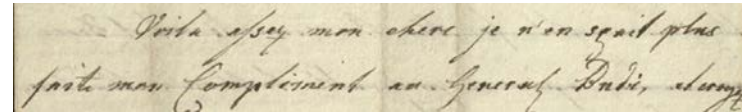 Voila assez mon chere je n'en sçait plus
faite mon Compliment au General Budé,